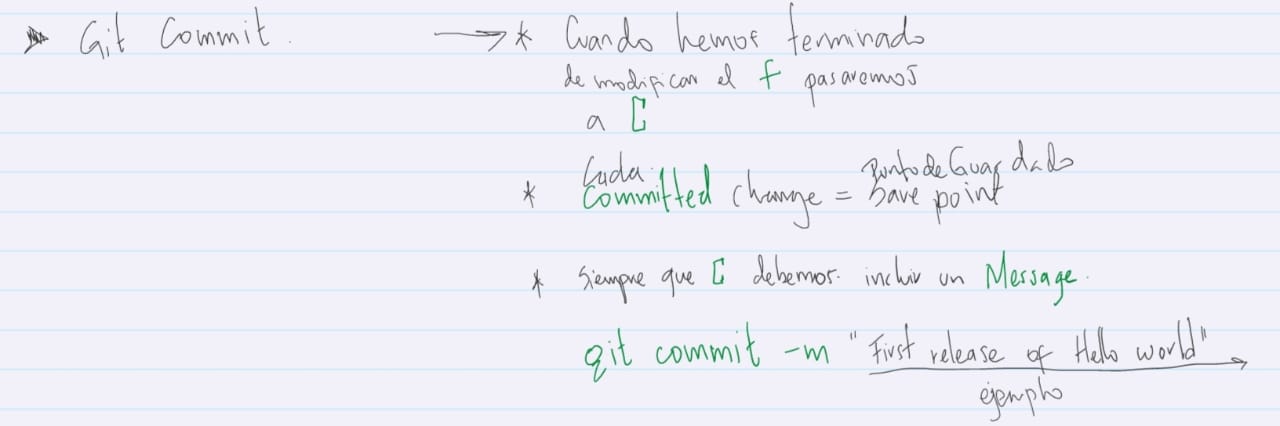 Git Commit. → * Cuando hemos terminado
de modificar el f pasaremos
a C
Cada Punto de Guardado
* Committed change = Save point
* Siempre que C debemos incluir un Message.
git commit -m "First release of Hello world"
ejemplo